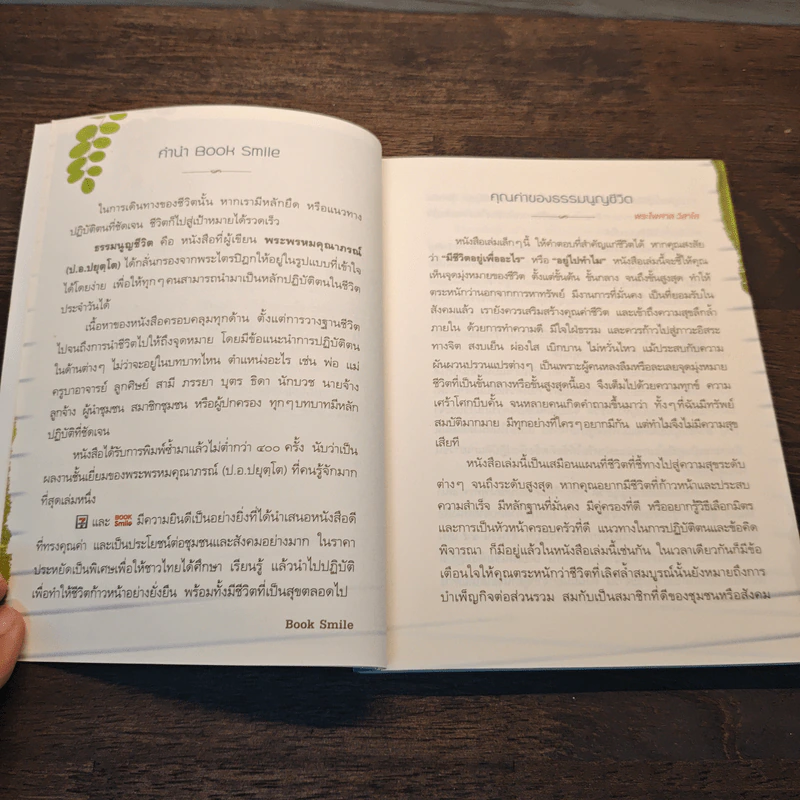 คำนำ Book Smile
ในการเดินทางของชีวิตนั้น หากเรามีหลักยึด หรือแนวทาง
ปฏิบัติตนที่ชัดเจน ชีวิตก็ไปสู่เป้าหมายได้รวดเร็ว
ธรรมนูญชีวิต คือ หนังสือที่ผู้เขียน พระพรหมคุณาภรณ์
(ป.อ.ปยุตฺโต) ได้กลั่นกรองจากพระไตรปิฎกให้อยู่ในรูปแบบที่เข้าใจ
ได้โดยง่าย เพื่อให้ทุกๆคนสามารถนำมาเป็นหลักปฏิบัติตนในชีวิต
ประจำวันได้
เนื้อหาของหนังสือครอบคลุมทุกด้าน ตั้งแต่การวางฐานชีวิต
ไปจนถึงการนำชีวิตไปให้ถึงจุดหมาย โดยมีข้อแนะนำการปฏิบัติตน
ในด้านต่างๆ ไม่ว่าจะอยู่ในบทบาทไหน ตำแหน่งอะไร เช่น พ่อ แม่
ครูบาอาจารย์ ลูกศิษย์ สามี ภรรยา บุตร ธิดา นักบวช นายจ้าง
ลูกจ้าง ผู้นำชุมชน สมาชิกชุมชน หรือผู้ปกครอง ทุกๆบทบาทมีหลัก
ปฏิบัติที่ชัดเจน
หนังสือได้รับการพิมพ์ซ้ำมาแล้วไม่ต่ำกว่า ๔๐๐ ครั้ง นับว่าเป็น
ผลงานชั้นเยี่ยมของพระพรหมคุณาภรณ์ (ป.อ.ปยุตฺโต) ที่คนรู้จักมาก
ที่สุดเล่มหนึ่ง
7 และ BOOK Smile มีความยินดีเป็นอย่างยิ่งที่ได้นำเสนอหนังสือดี
ที่ทรงคุณค่า และเป็นประโยชน์ต่อชุมชนและสังคมอย่างมาก ในราคา
ประหยัดเป็นพิเศษเพื่อให้ชาวไทยได้ศึกษา เรียนรู้ แล้วนำไปปฏิบัติ
เพื่อทำให้ชีวิตก้าวหน้าอย่างยั่งยืน พร้อมทั้งมีชีวิตที่เป็นสุขตลอดไป
Book Smile
คุณค่าของธรรมนูญชีวิต
พระไพศาล วิสาโล
หนังสือเล่มเล็กๆนี้ ให้คำตอบที่สำคัญแก่ชีวิตได้ หากคุณสงสัย
ว่า "มีชีวิตอยู่เพื่ออะไร" หรือ "อยู่ไปทำไม" หนังสือเล่มนี้จะชี้ให้คุณ
เห็นจุดมุ่งหมายของชีวิต ตั้งแต่ขั้นต้น ขั้นกลาง จนถึงขั้นสูงสุด ทำให้
ตระหนักว่านอกจากการหาทรัพย์ มีงานการที่มั่นคง เป็นที่ยอมรับใน
สังคมแล้ว เรายังควรเสริมสร้างคุณค่าชีวิต และเข้าถึงความสุขลึกล้ำ
ภายใน ด้วยการทำความดี มีใจใฝ่ธรรม และควรก้าวไปสู่ภาวะอิสระ
ทางจิต สงบเย็น ผ่องใส เบิกบาน ไม่หวั่นไหว แม้ประสบกับความ
ผันผวนปรวนแปรต่างๆ เป็นเพราะผู้คนหลงลืมหรือละเลยจุดมุ่งหมาย
ชีวิตที่เป็นขั้นกลางหรือขั้นสูงสุดนี้เอง จึงเต็มไปด้วยความทุกข์ ความ
เศร้าโศกบีบคั้น จนหลายคนเกิดคำถามขึ้นมาว่า ทั้งๆที่ฉันมีทรัพย์
สมบัติมากมาย มีทุกอย่างที่ใครๆอยากมีกัน แต่ทำไมจึงไม่มีความสุข
เสียที
หนังสือเล่มนี้เป็นเสมือนแผนที่ชีวิตที่ชี้ทางไปสู่ความสุขระดับ
ต่างๆ จนถึงระดับสูงสุด หากคุณอยากมีชีวิตที่ก้าวหน้าและประสบ
ความสำเร็จ มีหลักฐานที่มั่นคง มีคู่ครองที่ดี หรืออยากรู้วิธีเลือกมิตร
และการเป็นหัวหน้าครอบครัวที่ดี แนวทางในการปฏิบัติตนและข้อคิด
พิจารณา ก็มีอยู่แล้วในหนังสือเล่มนี้เช่นกัน ในเวลาเดียวกันก็มีข้อ
เตือนใจให้คุณตระหนักว่าชีวิตที่เลิศล้ำสมบูรณ์นั้นยังหมายถึงการ
บำเพ็ญกิจต่อส่วนรวม สมกับเป็นสมาชิกที่ดีของชุมชนหรือสังคม